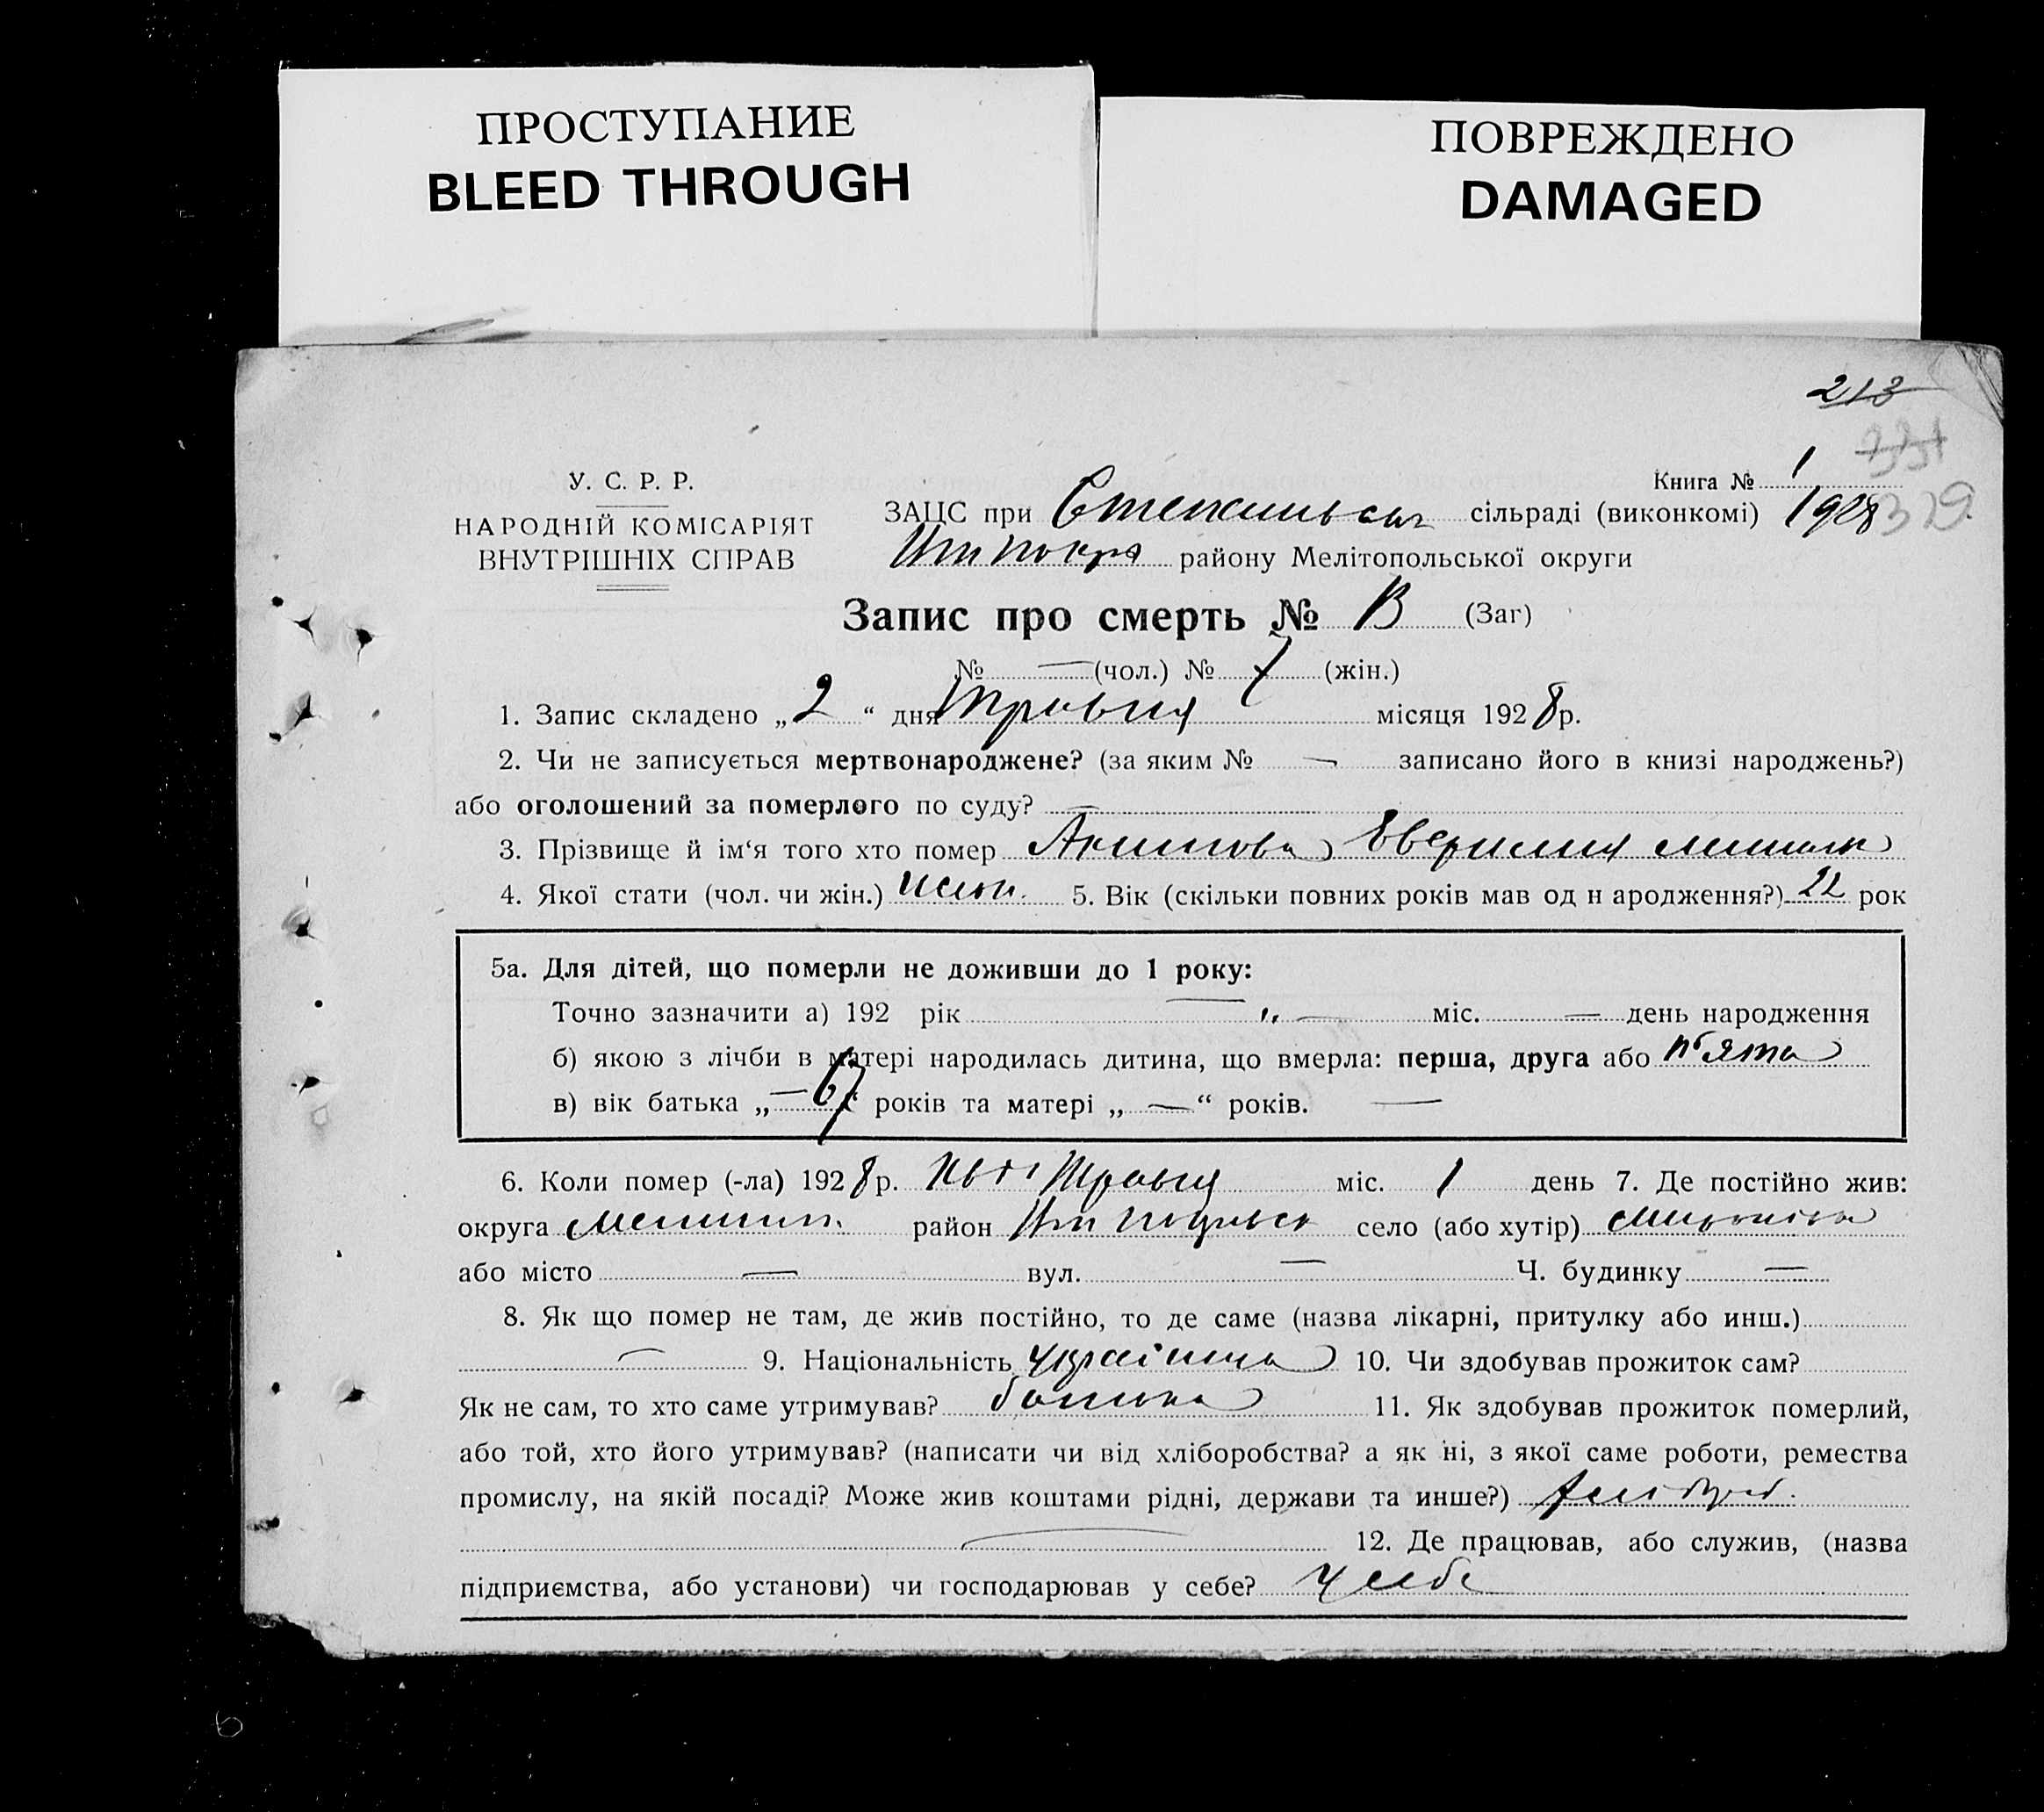 ПРОСТУПАНИЕ
BLEED THROUGH
ПОВРЕЖДЕНО
DAMAGED
213
У. С. Р. Р.
НАРОДНІЙ КОМІСАРІЯТ
ВНУТРІШНІХ СПРАВ
Книга № 1
329
ЗАЦС при сільраді (виконкомі) 1928
району Мелітопольської округи
Запис про смерть № (Заг)
№ — (чол.) № 7 (жін.)
1. Запис складено „2“ дня Травня місяця 1928 р.
2. Чи не записується мертвонароджене? (за яким № — записано його в книзі народжень?)
або оголошений за померлого по суду? —
3. Прізвище й ім‘я того хто помер Акимова
4. Якої стати (чол. чи жін.) 5. Вік (скільки повних років мав од н ародження?) 22 рок
5а. Для дітей, що померли не доживши до 1 року:
Точно зазначити а) 192 рік — „ — міс. — день народження
б) якою з лічби в матері народилась дитина, що вмерла: перша, друга або п'ята
в) вік батька „— 67“ років та матері „—“ років. —
6. Коли помер (-ла) 1928 р. Травня міс. 1 день 7. Де постійно жив:
округа район село (або хутір)
або місто — вул. — Ч. будинку —
8. Як що помер не там, де жив постійно, то де саме (назва лікарні, притулку або инш.)
— 9. Національність україинка 10. Чи здобував прожиток сам?
Як не сам, то хто саме утримував? батько 11. Як здобував прожиток померлий,
або той, хто його утримував? (написати чи від хліборобства? а як ні, з якої саме роботи, ремества
промислу, на якій посаді? Може жив коштами рідні, держави та инше?)
— 12. Де працював, або служив, (назва
підприємства, або установи) чи господарював у себе? у себе